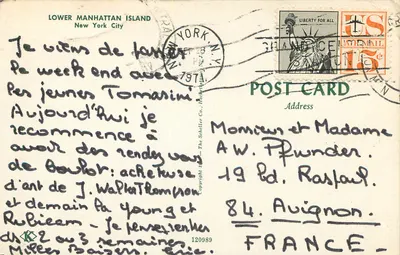 LOWER MANHATTAN ISLAND
New York City
NEW YORK, N.Y.
1971
GRAND CE
LIBERTY FOR ALL
US
15c
POST CARD
Address
Je viens de passer
le week end avec
les jeunes Tomasini.
Aujourd'hui je
recommence à
avoir des rendez vous
de boulot: acheteuse
d'art de J. WalterThompson
et demain la young et
Rubicam - Je pense rentrer
ds 2 ou 3 semaines
Milles Baisers. Eric.
K
120989
Monsieur et Madame
A W. Pfunder.
19 bd. Raspail.
84. Avignon.
FRANCE -